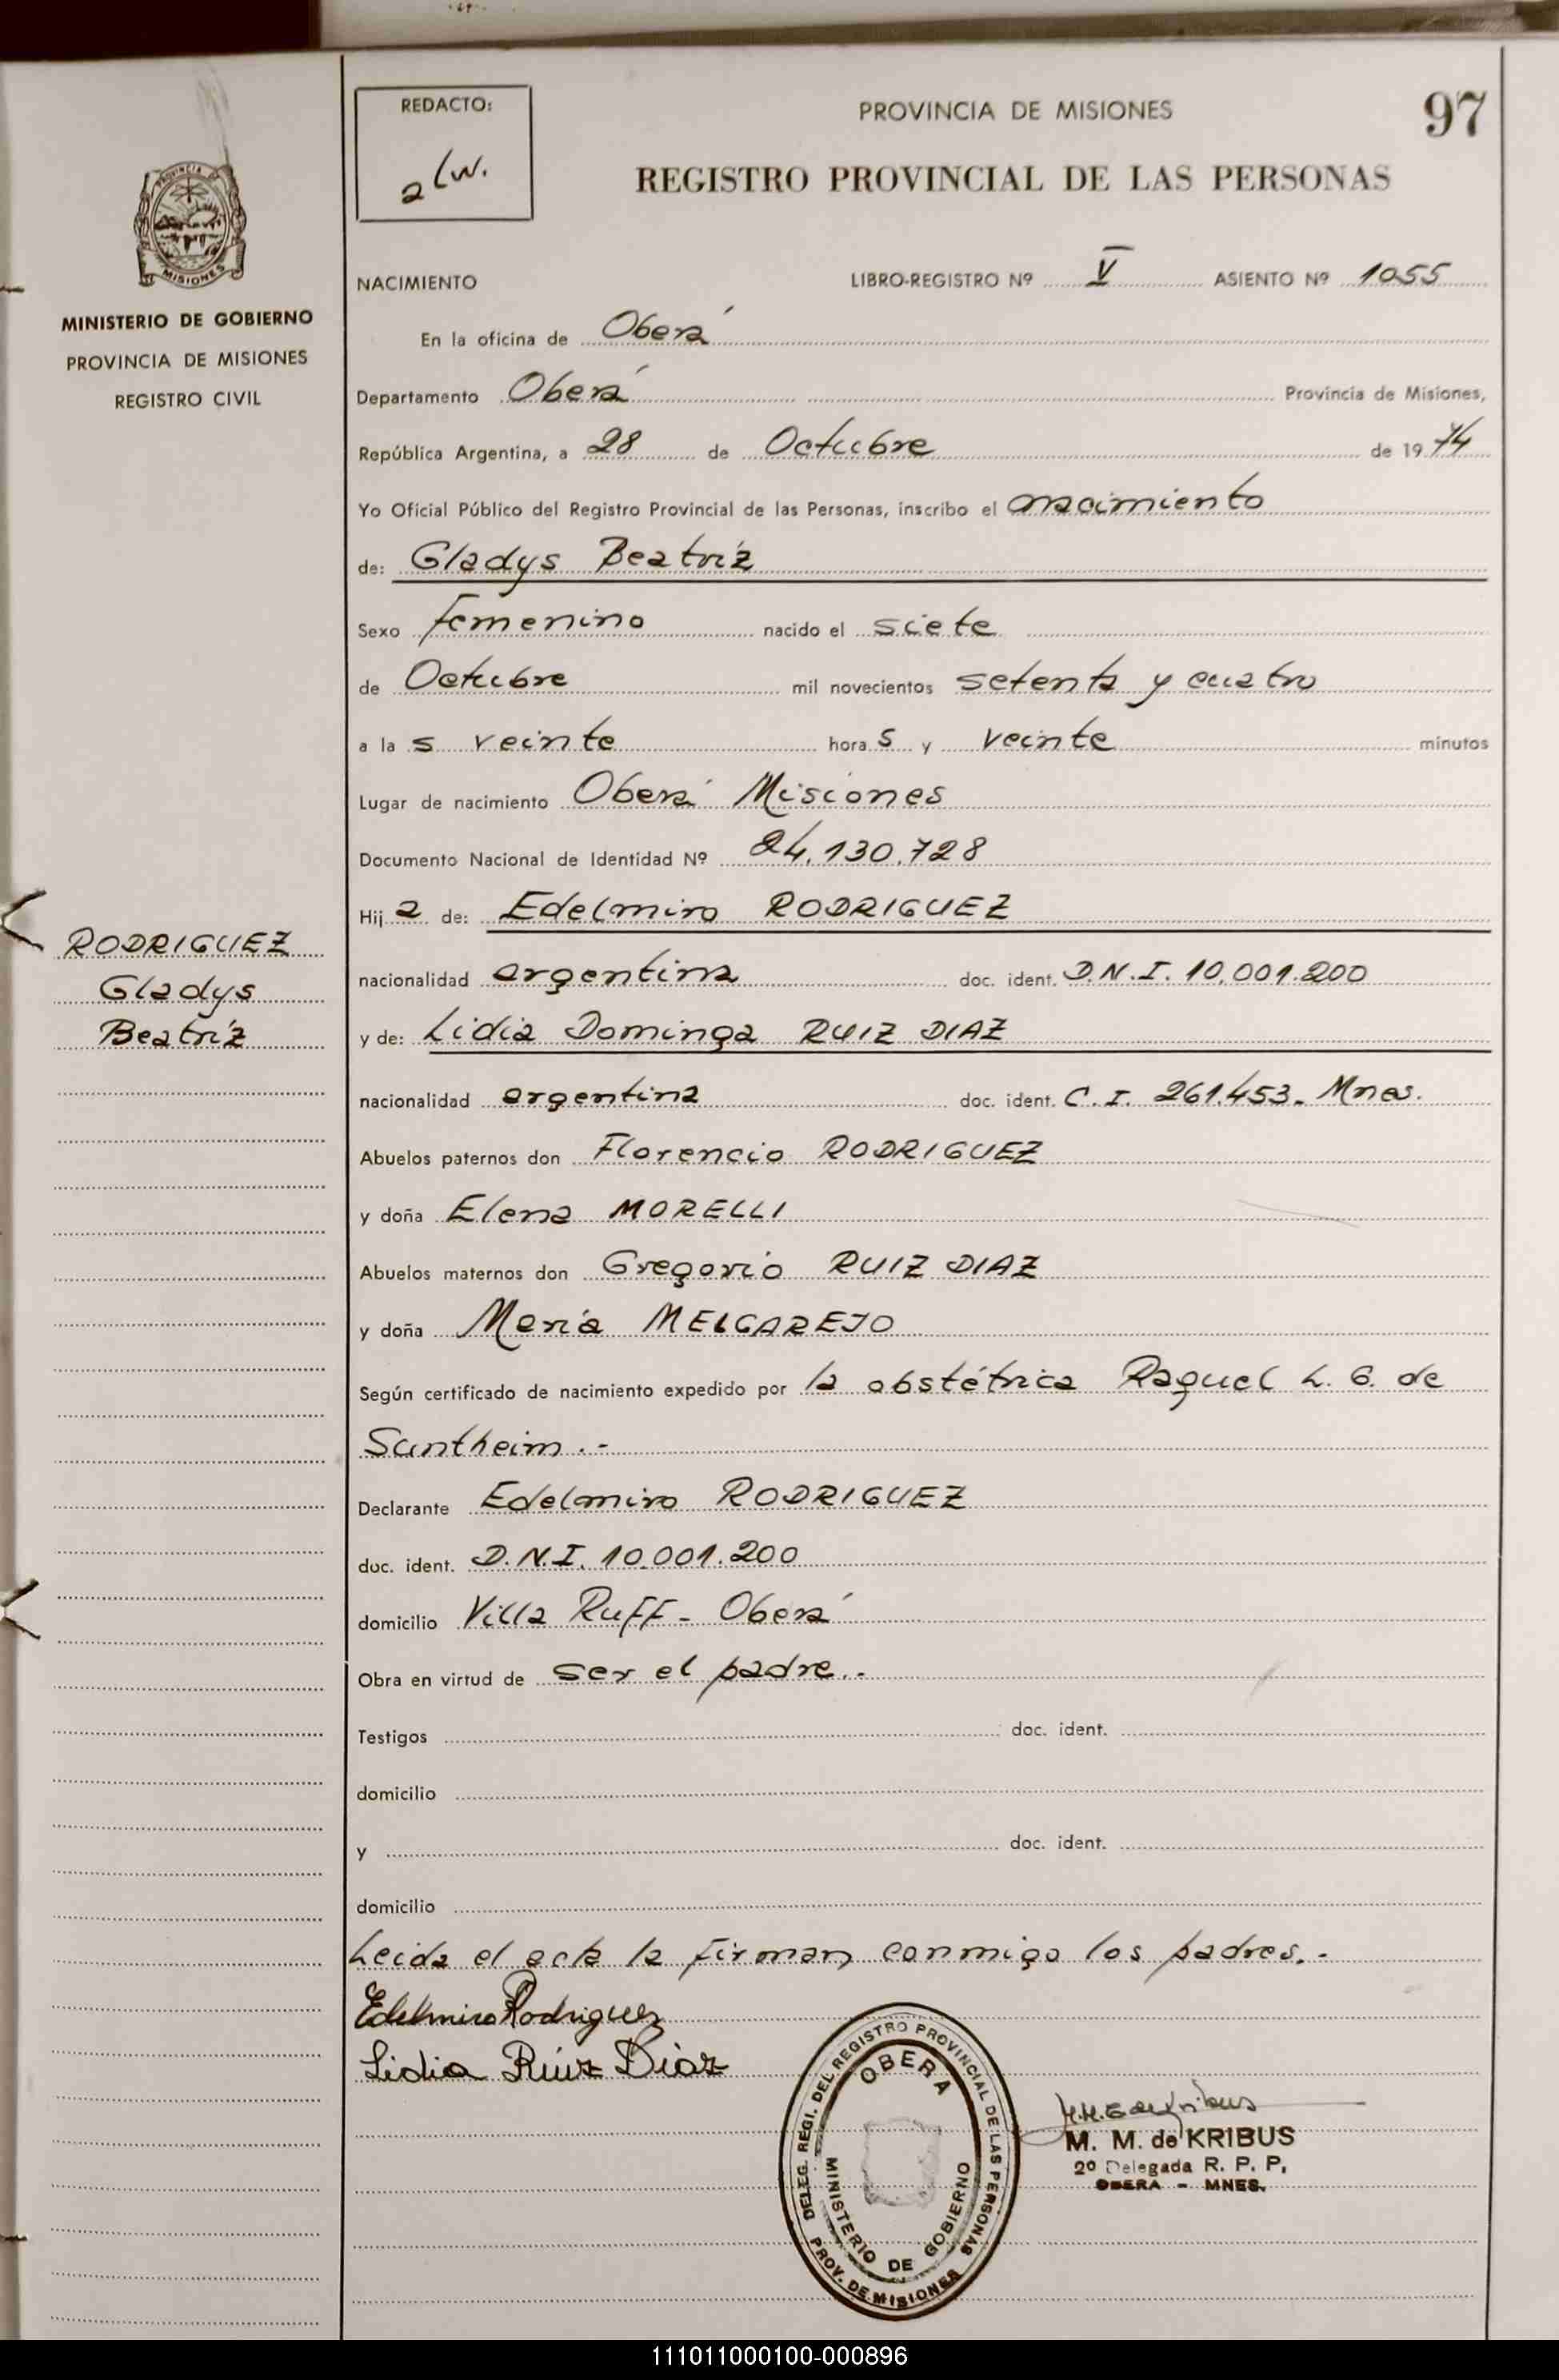 REDACTO:
a Lw.
PROVINCIA DE MISIONES
97
REGISTRO PROVINCIAL DE LAS PERSONAS
PROVINCIA DE
MISIONES
MINISTERIO DE GOBIERNO
PROVINCIA DE MISIONES
REGISTRO CIVIL
NACIMIENTO LIBRO-REGISTRO Nº V ASIENTO Nº 1055
En la oficina de Oberá
Departamento Oberá Provincia de Misiones,
República Argentina, a 28 de Octubre de 1974
Yo Oficial Público del Registro Provincial de las Personas, inscribo el nacimiento
de: Gladys Beatríz
Sexo femenino nacido el siete
de Octubre mil novecientos setenta y cuatro
a la s veinte hora s y veinte minutos
Lugar de nacimiento Oberá Misiones
Documento Nacional de Identidad Nº 24.130.728
Hij a de: Edelmiro RODRIGUEZ
nacionalidad argentina doc. ident. D.N.I. 10.001.200
y de: Lidia Dominga RUIZ DIAZ
nacionalidad argentina doc. ident. C.I. 261.453. Mnes.
Abuelos paternos don Florencio RODRIGUEZ
y doña Elena MORELLI
Abuelos maternos don Gregorio RUIZ DIAZ
y doña María MELGAREJO
Según certificado de nacimiento expedido por la obstétrica Raquel L. G. de
Suntheim.-
Declarante Edelmiro RODRIGUEZ
doc. ident. D.N.I. 10.001.200
domicilio Villa Ruff - Oberá
Obra en virtud de ser el padre.-
Testigos doc. ident.
domicilio
y doc. ident.
domicilio
Leida el acta la firman conmigo los padres.-
Edelmiro Rodriguez
Lidia Ruiz Diaz
RODRIGUEZ
Gladys
Beatríz
DELEG. REGI. DEL REGISTRO PROVINCIAL DE LAS PERSONAS
OBERA
MINISTERIO DE GOBIERNO
PROV. DE MISIONES
M. M. de KRIBUS
2º Delegada R. P. P.
OBERA - MNES.
111011000100-000896